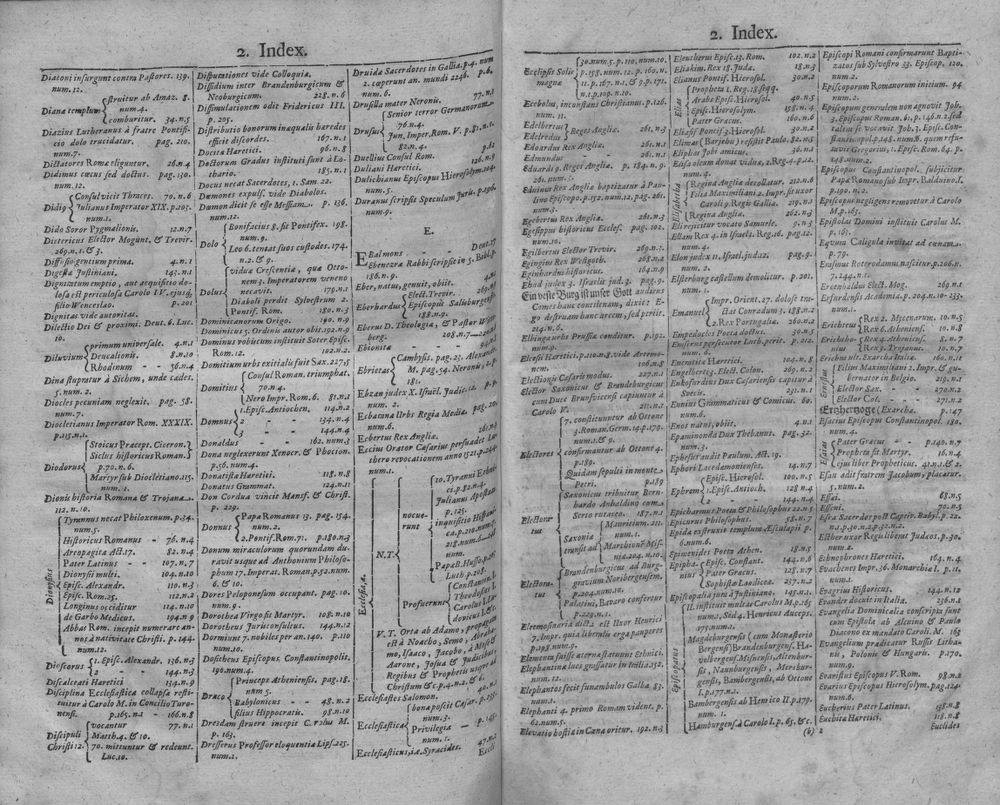 2. Index.
Diaconi insurgunt contra Pastores. 139.
num. 12.
Diana templum
struitur ab Amaz. 8.
num. 4.
comburitur. 34. n. 5
Diazius Lutheranus à fratre Pontifi-
cio dolo trucidatur. pag. 210.
num. 7.
Dictatores Romæ eliguntur. 26. n. 4
Didimus cæcus sed doctus. pag. 130.
num. 12.
Didig
Consul vicit Thraces. 70. n. 6
Julianus Imperator XIX. p. 103.
num. 1.
Dido Soror Pygmalionis. 12. n. 7
Dietericus Elector Mogunt. & Trevir.
269. n. 1. & 3.
Diffusio gentium prima. 4. n. 1
Digesta Justiniani. 143. n. 1
Dignitatum emptio, aut acquisitio do-
losa est periculosa Carolo IV. ejusq;
filio Wenceslao.
Dignitas vide autoritas.
Dilectio Dei & proximi. Deut. 6. Luc.
10.
Diluvium
primum universale. 4. n. 1
Deucalionis. 8. n. 10
Rhodinum - 36. n. 4
Dina stupratur à Sichem, unde cædes.
5. num. 2.
Diocles pecuniam neglexit. pag. 58.
num. 7.
Diocletianus Imperator Rom. XXXIX.
p. 115. n. 1.
Diodorus
Stoicus Præcept. Ciceron.
Siclus historicus Roman.
p. 70. n. 6.
Martyr sub Diocletiano. 115.
num. 1.
Dionis historia Romana & Trojana.
112. n. 10.
Dionysius
Tyrannus necat Philoxenum. p. 34.
num. 5.
Historicus Romanus - 76. n. 4
Areopagita Act. 17. 82. n. 4
Pater Latinus - 107. n. 7
Dionysii multi. 104. n. 10
Episc. Alexandr. 110. n. 3
Episc. Rom. 25. 112. n. 2
Longinus occiditur 114. n. 10
de Garbo Medicus. 194. n. 9
Abbas Rom. incepit numerare an-
nos à nativitate Christi. p. 144.
Dioscorus
1. Episc. Alexandr. 136. n. 3
2 - - 144. n. 3
Discalcati Hæretici 134. n. 9
Disciplina Ecclesiastica collapsa resti-
tuitur à Carolo M. in Concilio Turo-
nensi. p. 165. n. 1 - 166. n. 8
Discipuli
Christi 12
vocantur 77. n. 1
Matth. 4. & 10.
70. mittuntur & redeunt.
Luc. 10.
Disputationes vide Colloquia.
Dissidium inter Brandenburgicum &
Neoburgicum. 228. n. 6
Dissimulationem odit Fridericus III.
p. 205.
Distributio bonorum inæqualis hæredes
efficit discordes. 167. n. 1
Docitæ Hæretici. 96. n. 8
Doctorum Gradus instituti sunt à Lo-
thario. 185. n. 1
Docus necat Sacerdotes, 1. Sam. 22.
Dæmones expulsi, vide Diabolos.
Dæmon dicit se esse Messiam. p. 136.
num. 12.
Dolo
Bonifacius 8. fit Pontifex. 198.
num. 9.
Leo 6. tentat suos custodes. 174.
n. 2. & 9.
Dolus
vidua Crescentia, qua Otto-
nem 3. Imperatorem veneno
necavit. 179. n. 1
Diaboli perdit Sylvestrum 2.
Pontif. Rom. 180. n. 3
Dominicanorum Origo. 190. n. 9
Dominicus 5. Ordinis autor obit. 192. n. 9
Dominus vobiscum instituit Soter Episc.
Rom. 12. 102. n. 2
Domitium urbs exitialis fuit Sax. 227. 5
Domitius
Consul Roman. triumphat.
70. n. 4.
Nero Impr. Rom. 6. 81. n. 1
Domnus
1. Episc. Antiochen. 114. n. 2
2 - - 134. n. 4
3 - - 144. n. 4
Donaldus - 162. num. 3
Dona neglexerunt Xenocr. & Phocion.
p. 56. num. 4.
Donatistæ Hæretici. 118. n. 8
Donatus Grammat. 124. n. 11
Don Cordua vincit Mansf. & Christ.
p. 229.
Donnus
Papa Romanus 13. pag. 154.
num. 2.
2. Pontif. Rom. 71. p. 180. n. 3
Donum miraculorum quorundam du-
ravit usque ad Anthonium Philoso-
phum 17. Imperat. Roman. p. 52. num.
6. & 10.
Dores Peloponesum occupant. pag. 10.
num. 9.
Dorothea Virgo fit Martyr. 108. n. 10
Dorotheus Jurisconsultus. 144. n. 10
Dormiunt 7. nobiles per an. 140. p. 110
num. 10.
Dositheus Episcopus Constantinopolis.
190. num. 4.
Draco
Princeps Atheniensis. pag. 18.
num. 5.
Babylonicus - 48. n. 2
filius Hippocratis. 98. n. 10
Dresdam struere incepit Carolus M.
p. 163.
Dresserus Professor eloquentiæ Lips. 225.
num. 2.
Druidæ Sacerdotes in Gallia. p. 4. num
2. cœperunt an. mundi 2246. p. 6.
num. 6.
Drusilla mater Neronis. 77. n. 1
Drusus
Senior terror Germanorum.
76. n. 4.
Jun. Imper. Rom. V. p. 81. n. 1.
82. n. 4.
Duellius Consul Rom. p. 61
Duliani Hæretici. 126. n. 9
Dulichianus Episcopus Hierosolym. 104
num. 4.
Duranus scripsit Speculum Juris. p. 196.
num. 9.
E.
EBalmons - - Deut. 27
Ebeneza Rabbi scripsit in 5. Bibl. p.
186. n. 9.
Eber, natus, genuit, obiit. 4. n. 1
Eberhardus
Elect. Trevir. 269. n. 3
Episcopus Salisburgensis
188. n. 9.
Eberus D. Theologiæ, & Pastor Witte-
berg. 208. n. 7
Ebionita - - 94. n. 8
Ebrietas
Cambysis. pag. 23. Alexandr.
M. pag. 54. Neronis. p.
181.
Ebzan judex X. Israël. Judic. 12. p.
num. 2.
Ecbatana Urbs Regia Mediæ. pag. 20.
num. 6.
Ecbertus Rex Angliæ. 261. n. 3
Eccius Orator Casarius persuadet Lu-
thero revocationem anno 1521. p. 244
Ecclesia, æ.
N. T.
nocue-
runt
10. Tyranni Ethni-
ci. p. 92. n. 4.
Julianus Apostat.
p. 125.
inquisitio Hispani-
ca. p. 210. num.
218. num. 6. 248
num. 8.
Papa & Hussio. p. 205
Luth. p. 208.
Profuerunt
Constantin. I.
Theodosius
Carolus I. Lu-
dovicus &c.
V. T. Orta ab Adamo, propagata
est à Noacho, Semo, Abraha-
mo, Isaaco, Jacobo, à Mose,
Aarone, Josua & Judicibus,
Regibus & Prophetis usque ad
Christum & c. p. 4. n. 2. & 6.
Ecclesiastes Salomon. 15. n. 1
Ecclesiastica
bona poscit Cæsar. p. 63.
num. 3.
Privilegia - p. 145.
num. 1.
Ecclesiasticus, iæ Syracides. 47. n. 2
Eccli-
2. Index.
Eclipsis Solis
magna
30. num. 5. p. 110. num. 10.
p. 198. num. 12. p. 160. n.
11. p. 167. n. 1, & 9. p. 171.
n. 1. p. 109. n. 10.
Ecebolus, inconstans Christianus. p. 126.
num. 1.
Edelbertus
Edelredus
Reges Angliæ. 261. n. 3
Edoardus Rex Angliæ 261. n. 3
Edmundus - 261. n. 3
Eduardus 9. Regei Angliæ. p. 184. n. 9.
261. num. 3.
Eduinus Rex Angliæ baptizatur à Pau-
lino Episcopo. p. 152. num. 12. pag. 261.
num. 3.
Egebertus Rex Angliæ. 261. n. 3
Egesippus historicus Eccles. pag. 102.
num. 10.
Egilbertus Elector Trevir. 269. n. 3
Egingius Rex Westgoth. 268. n. 2
Eginhardus historicus. 164. n. 9
Ehud judex 3. Israelis Propheta. pag. 9.
Ein veste Burg ist unser Gott audiens
Comes hanc concionem, dixit: E-
go destruam hanc arcem, sed periit.
214. n. 6.
Elbinga urbs Prussiæ conditur. p. 192.
num. 1.
Elcesæi Hæretici. p. 110. n. 8. vide Artemo-
nem.
Electionis Cæsaris modus. 227. n. 1
Elector Saxonicus & Brandeburgicus
cum Duce Brunsvicensi capiuntur à
Carolo V. 211. n. 1
Electores
7. constituuntur ab Ottone
3. Roman. Germ. 14. p. 179.
num. 1. & 9.
confirmantur ab Ottone 4.
p. 189.
Quidam sepulti in monte
Petri. p. 189
Electora-
tus
Saxonicus tribuitur Bern-
hardo Anhaldino cum
Serto rutaceo. 187. n. 1
Saxonia
transit ad
Mauricium. 211.
num. 1.
Marchiones Mis-
niæ. 204. n. 10.
Electora-
tus
Brandenburgicus ad Burg-
gravium Noribergensem.
204. n. 1.
Palatini, Bavaro confertur
p. 229. n. 1.
Eleemosynaria dicta est Uxor Henrici
7. Impr. quia liberalis erga pauperes
p. 185. num. 1.
Elemenia fuisse aeternæ statuunt Ethnici.
Elephantina lues grassatur in Italia. 132.
num. 12.
Elephantos fecit funambulos Galba. 83.
num. 1.
Elephanti 4. primo Romam vident. p.
62. num. 5.
Elevatio hostiæ in Cœna oritur. 192. n. 3
Eleutherus Episc. 13. Rom. 102. n. 2
Eliakim. Rex 18. Judæ. 18. n. 3
Elianus Pontif. Hierosol. 30. n. 2
Elias
Propheta 1. Reg. 18. seqq.
Arabs Episc. 40. n. 5
Episc. Hierosol. 138. n. 4
Episc. Hierosolym. 158. n. 4
Pater Græcus. 160. n. 6
Eliasif Pontif. 3. Hierosol. 30. n. 2
Elimas (Barjebu) resistit Paulo. 82. n. 3
Eliphaz Jobi amicus. 36. n. 1
Elisa oleum donat viduæ. 2. Reg. 4. p. 12.
num. 1.
Elisabetha
Regina Angliæ decollatur. 212. n. 6
Filia Maximiliani 2. Impr. fit uxor
Caroli 9. Regis Galliæ. 219. n. 1
(Regina Angliæ. 262. n. 3
Eli rejicitur vocato Samuele. 9. n. 3
Ellam Rex 4. in Israël. 1. Reg. 16. pag. 12.
num. 4.
Elon judex 11. Israël. jud. 12. pag. 9.
num. 3.
Elsterburg castellum demolitur. p. 201.
num. 1.
Emanuel
Impr. Orient. 27. dolose tra-
ctat Conradum 3. 188. n. 2
2. Rex Portugalliæ. 260. n. 2
Empedocles Poeta doctus. 30. n. 5
Emsgurius persecutor Luth. perit. p. 212.
num. 6.
Encratitæ Hæretici. 104. n. 8
Engelbertig. Elect. Colon. 269. n. 2
Enkofurdus Dux Cæsareus capitur à
Suecis. 231. n. 1
Ennius Grammaticus & Comicus. 60.
num. 6.
Enot narvi, obiit. 4. n. 1
Epaminonda Dux Thebanus. pag. 32.
num. 3.
Ephesi fit audit Paulum. Act. 19.
Ephori Lacedæmonienses. 14. n. 7
Ephrem
1. Episc. Hierosolym. 100. n. 4
- Episc. Antioch. 128. n. 4
2 - 144. n. 4
Epicharmus Poeta & Philosophus 22. n. 5
Epicurus Philosophus. 58. n. 7
Epida exstruxit templum Æsculapii p.
6. num. 6.
Epimenides Poeta Athen. 18. n. 5
Epipha-
nius
Episc. Constant. 144. n. 4
Pater Græcus. 128. n. 5
Sophista Laodicea. 257. n. 2
Episcopalia jura Justiniani. 145. n. 1
Episcopatus
II. instituit multos Carolus M. p. 163
num. 1, Sed 4. Henricus Auceps.
177. num. 1.
Magdeburgensis (cum Monasterio
Bergensi) Brandenburgens. Ha-
velbergens. Misniens. Altenbur-
gens. Naumburgensis, Mersbur-
gens. Bambergensis, ab Ottone
I. p. 177. n. 1.
Bambergensis ab Henrico II. p. 179
num. 1.
Hamburgensis à Carolo I. p. 65. & c.
(b) 2
Episcopi Romani confirmarunt Bapti-
zatos sub Sylvestro 33. Episcop. 120.
num. 2.
Episcoporum Romanorum initium. 94
num. 2.
Episcopum generalem non agnovit Job.
3. Episcopus Roman. 61. p. 146. n. 2. sed
talem se vocavit Job. 3. Episc. Con-
stantinop. 52. p. 148. n. 4. sed refuta-
tur à Gregorius I. Episc. Rom. p. 148.
num. 2.
Episcopus Constantinopol. subjicitur
Papæ Romano sub Impr. Balduino. I.
p. 190. n. 2.
Episcopus negligens removetur à Carolo
M. p. 165.
Epistolas Domini instituit Carolus M.
p. 163.
Equum Caligula invitat ad cœnam.
p. 79.
Erasmus Roterodamus nascitur. p. 206. n.
7. 244. n. 1.
Erchembaldus Elect. Mog. 269. n. 1
Erfurdensis Academia. p. 204. n. 10. 233.
num. 1.
Erichteus
Rex 2. Mycenarum. 10. n. 5
Rex 6. Atheniens. 10. n. 8
Erichtho-
nius
Rex 4. Atheniens. 8. n. 7
Rex 5. Trojanus. 10. n. 7
Eris ult. Exarcha Italiæ. 160. n. 11
Ernestus
Filius Maximiliani 2. Impr. & gu-
bernator in Belgio. 219. n. 1
Elector Sax. - 270. n. 2
Elector Col. - 271. n. 2
Ertzhertzoge (Exarcha. p. 147
Esaias Episcopus Constantinopol. 180.
num. 4.
Esaias
Pater Græcus - p. 140. n. 7
Propheta fit Martyr. 16. n. 4
ejus liber Propheticus. 41. n. 1. & 2.
Esau odit fratrem Jacobum, placatur.
5. num. 2.
Essæi. 68. n. 5
Esseni. 70. n. 5
Esra Sacerdos post Captiv. Babyl. p. 22.
n. 1. p. 30. n. 2. p. 32. n. 2.
Ethelbruxer Rex religavit Judæos. p. 30.
num. 3.
Ethnophrones Hæretici. 164. n. 4
Evachenes Impr. 36. Monarchiæ I. p. 11.
num. 1.
Evagrius Historicus. 144. n. 12
Evander ducit in Italia. 236. n. 1
Evangelia Dominicalia conscripta sunt
cum Epistola ab Alcuino & Paulo
Diacono ex mandato Caroli. M. 163
Evangelium prædicatur Russis Lithua-
nis, Polonis & Hungaris. p. 170.
num. 3.
Evaristus Episcopus V. Rom. 98. n. 2
Evarius Episcopus Hierosolym. pag. 124
num. 4.
Eucherius Pater Latinus. 138. n. 8
Euchita Hæretici. 118. n. 8
Euclides